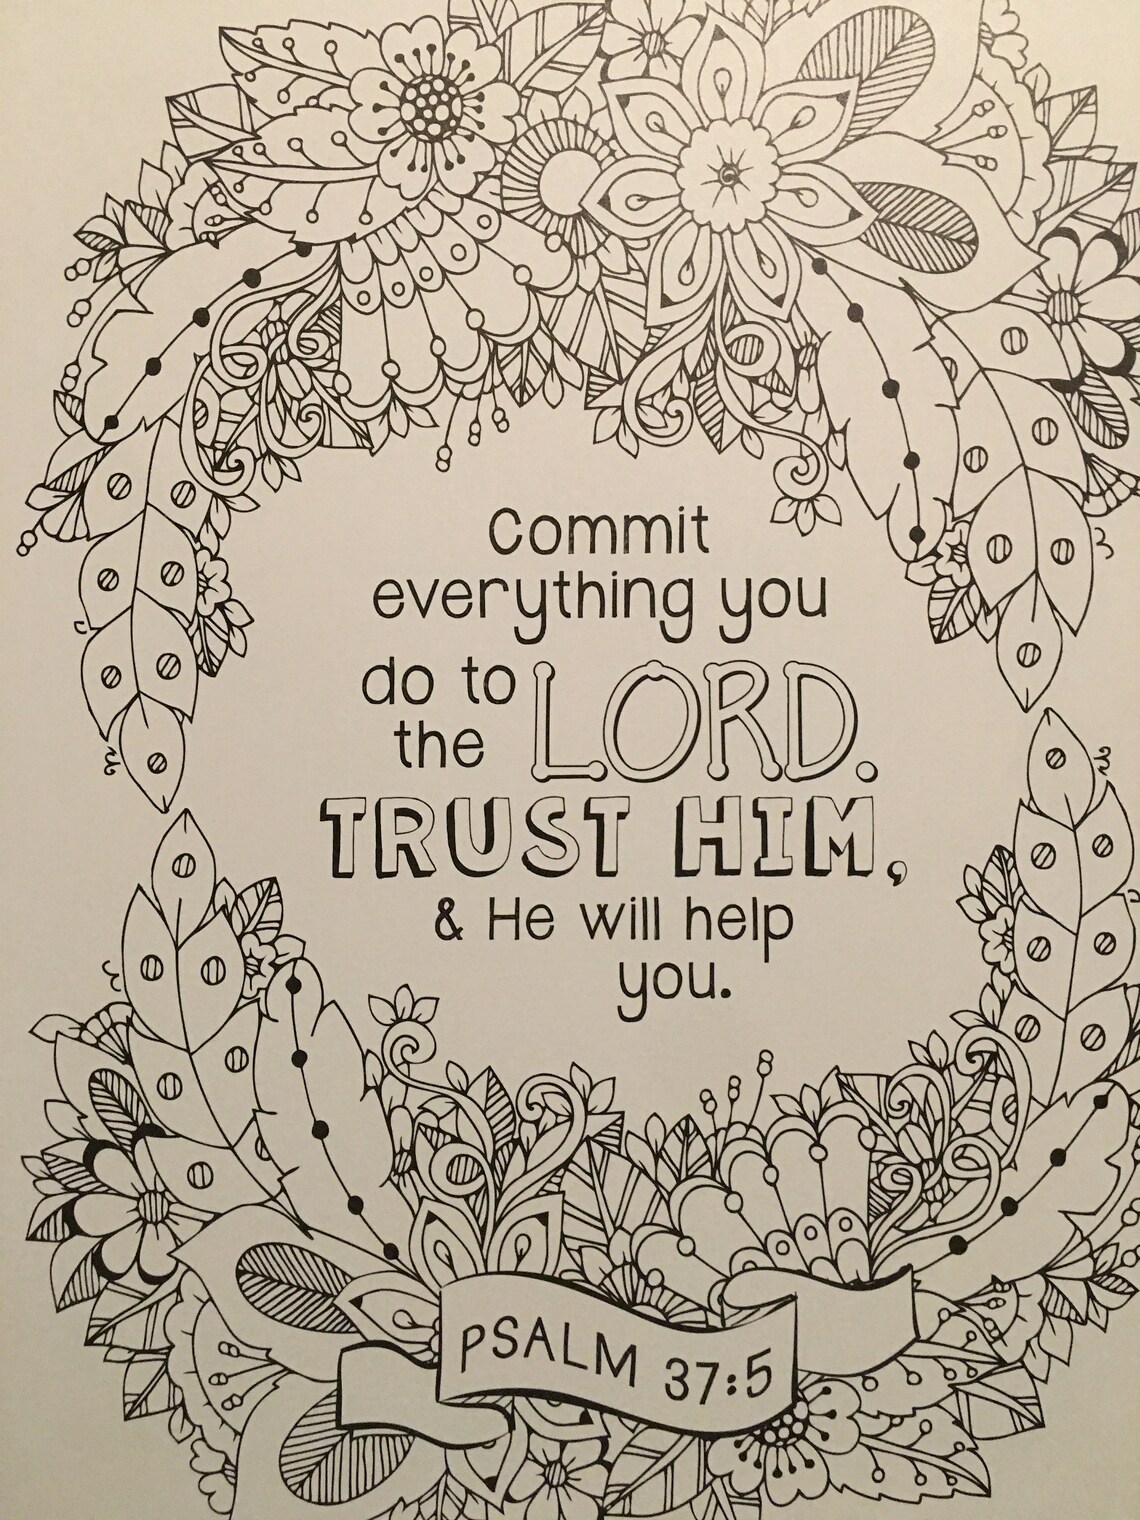 Commit
everything you
do to
the LORD.
TRUST HIM,
& He will help
you.
PSALM 37:5